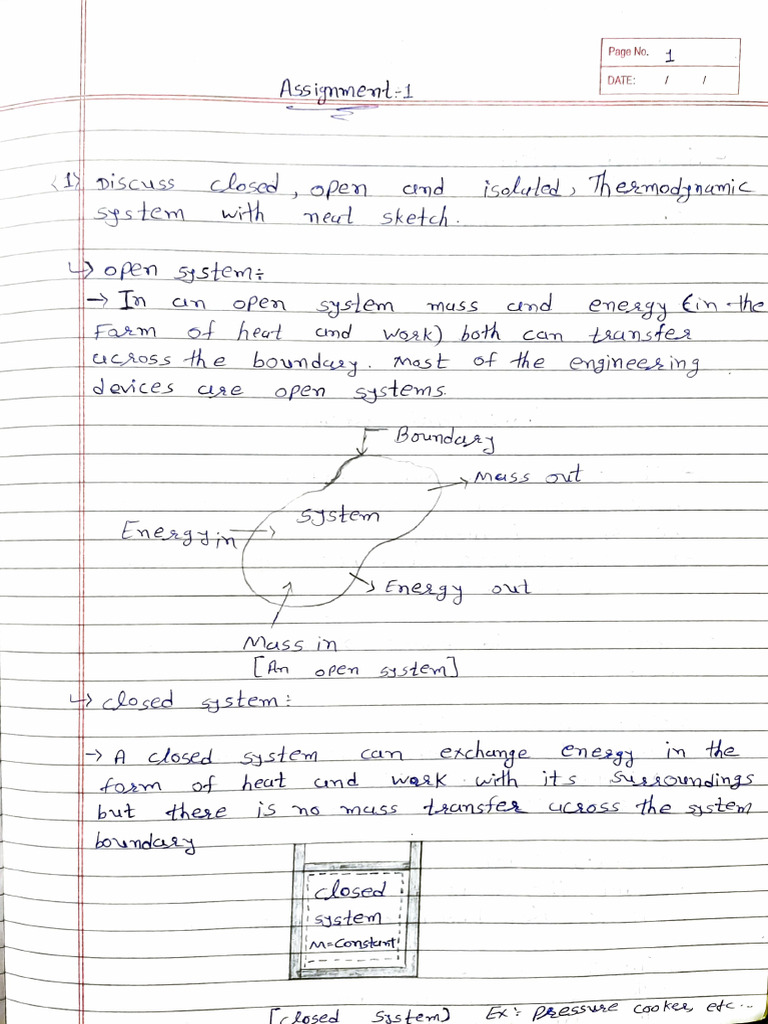 Page No. 1
DATE: / /
Assignment:-1
<1> Discuss closed, open and isolated, Thermodynamic
system with neat sketch.
↳ open system:
→ In an open system mass and energy (in the
Form of heat and work) both can transfer
across the boundary. Most of the engineering
devices are open systems.
Boundary
Mass out
system
Energy in
Energy out
Mass in
[An open system]
↳ closed system:
→ A closed system can exchange energy in the
form of heat and work with its surroundings
but there is no mass transfer across the system
boundary
closed
system
M=Constant
[closed system] Ex: pressure cooker, etc...